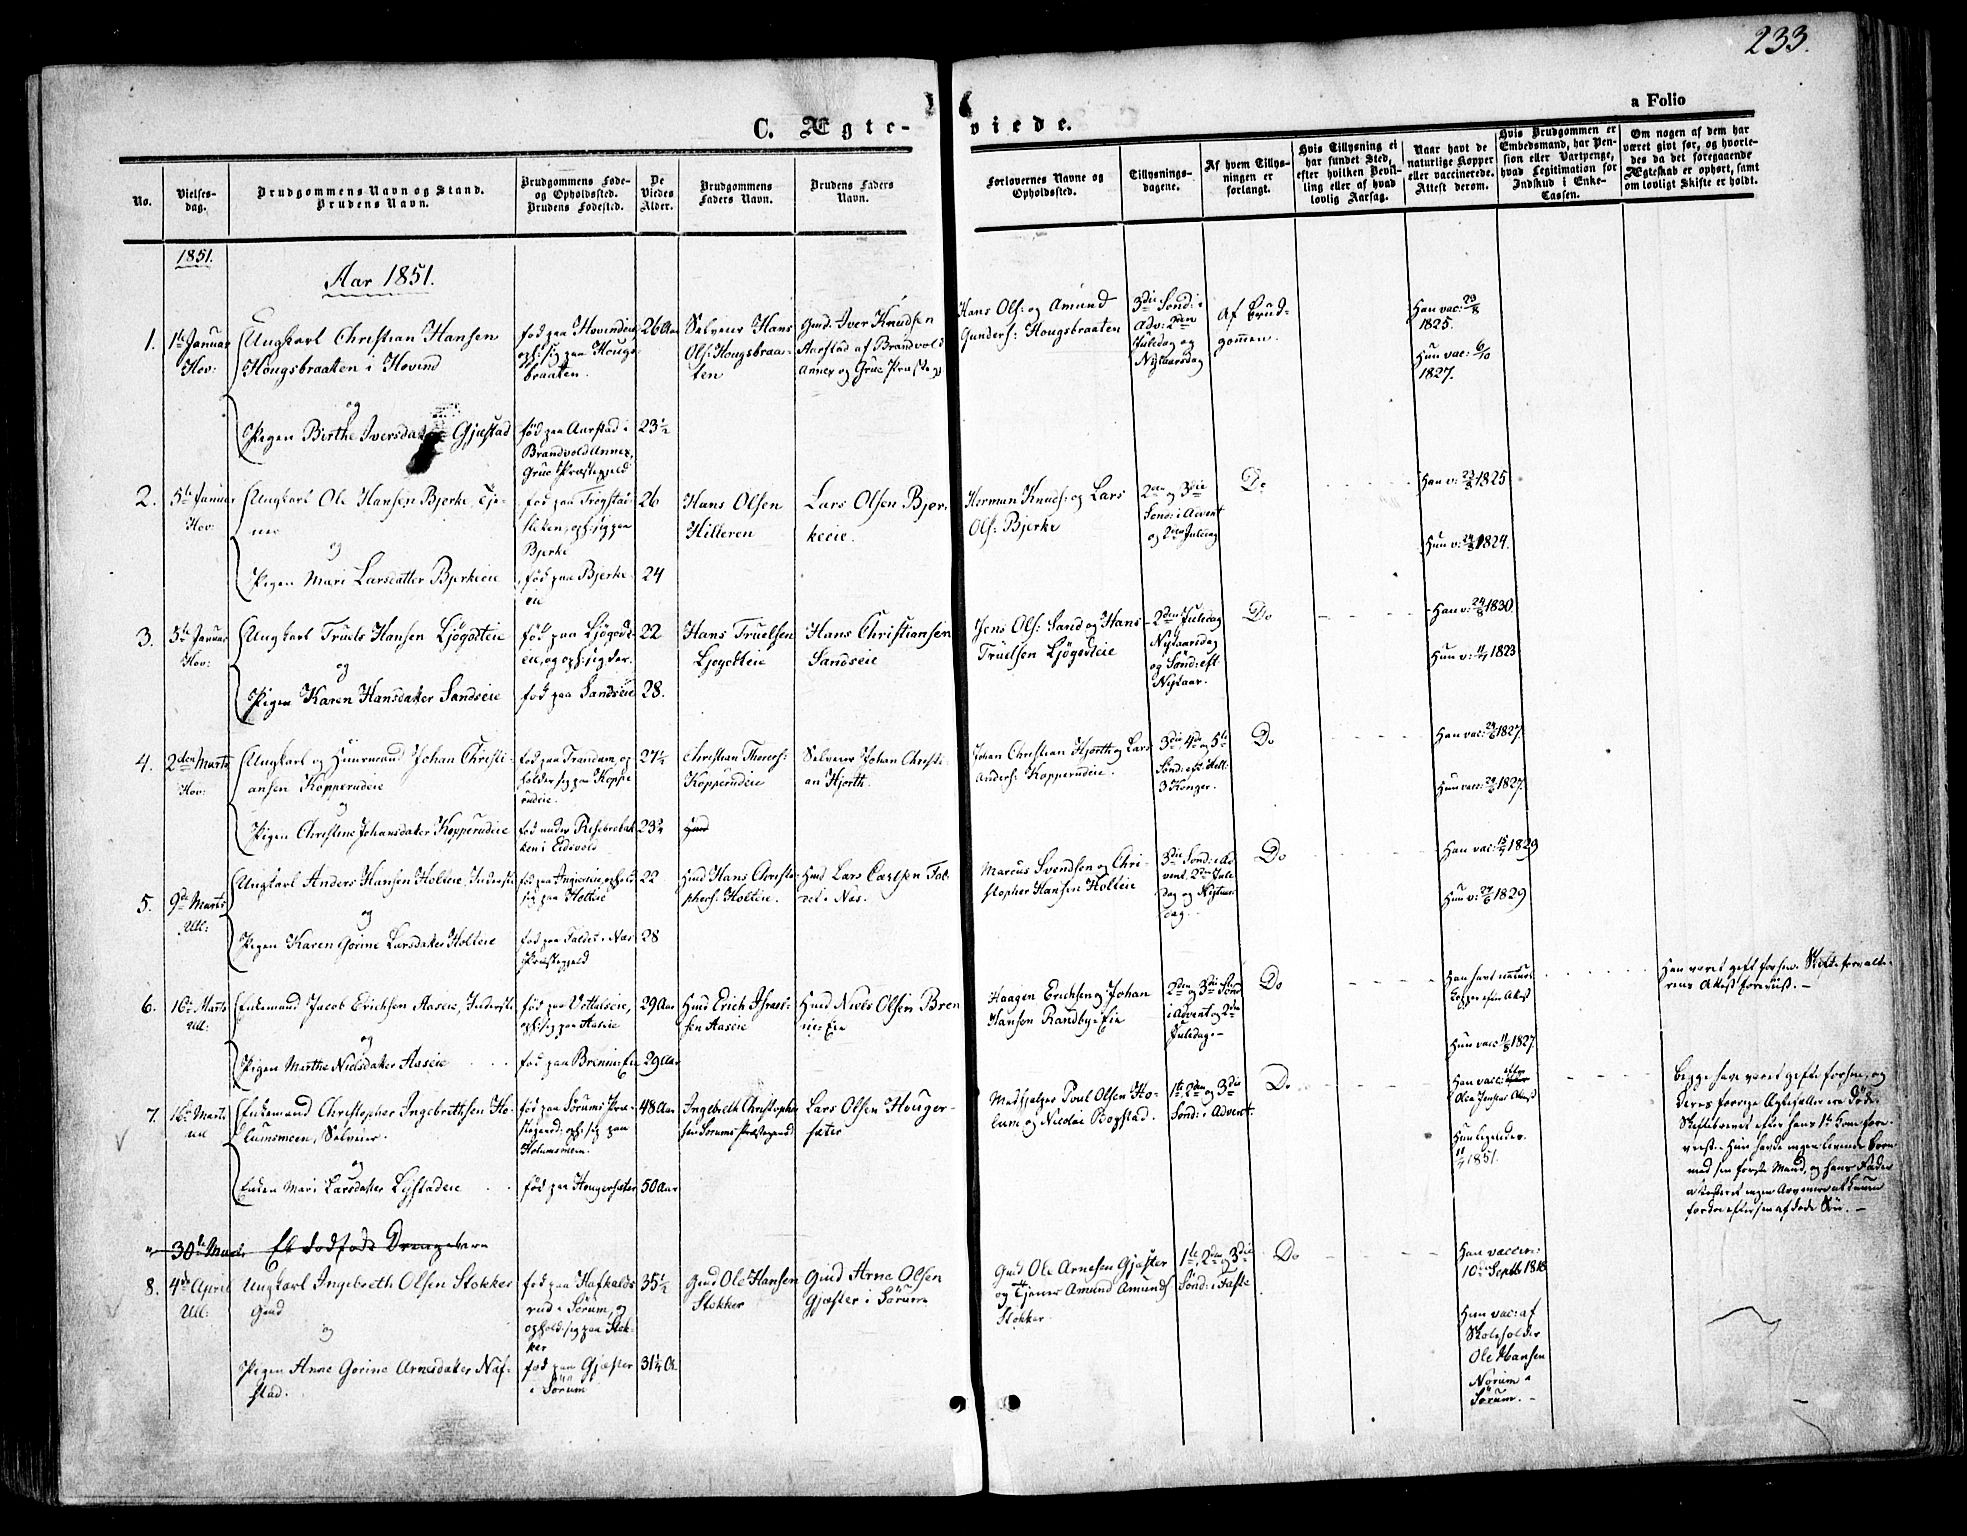 233.
a Folio
C. Ægte-
viede.
No.
Vielses-
dag.
Brudgommens Navn og Stand.
Brudens Navn.
Brudgommens Føde-
og Opholdssted.
Brudens Fødested.
De
Viedes
Alder.
Brudgommens
Faders Navn.
Brudens Faders
Navn.
Forlovernes Navne og
Opholdssted.
Tillysnings-
dagene.
Af hvem Tillys-
ningen er
forlangt.
Hvis Tillysning ei
har fundet Sted,
efter hvilken Bevil-
ling eller af hvad
lovlig Aarsag.
Naar havt de
naturlige Kopper
eller vaccinerede.
Attest derom.
Hvis Brudgommen er
Embedsmand, har Pen-
sion eller Vartpenge,
hvad Legitimation for
Indskud i Enke-
Cassen.
Om nogen af dem har
været givt før, og hvorle-
des da det foregaaende
Ægteskab er ophørt, samt
om lovligt Skifte er holdt.
1851.
Aar 1851.
1.
1te Januar
Hov:
Ungkarl Christian Hansen
Hougsbraaten i Hovind
og
Pigen Birthe Iversdatter Gjæstad
fød paa Hovindeie,
oph: sig paa Hougs-
braaten.
fød paa Aarstad i
Brandvold Annex,
Grue Præstegjeld
26 Aar
23½
Selveier Hans
Ols: Hougsbraa-
ten
Gmd: Iver Knudsen
Aarstad af Brandvold
Annex og Grue Præsteg:
Hans Ols: og Amund
Gunders: Hougsbraaten
3die Sønd: i
Adv: 2den
Juledag og
Nytaarsdag
Af Brud-
gommen.
Han vac: 23/8
1825.
Hun vac: 6/10
1827.
2.
5te Januar
Hov:
Ungkarl Ole Hansen Bjerke, Tje-
ner
og
Pigen Mari Larsdatter Bjerkeeie
fød paa Trøgstad-
oph: sig paa
Bjerke
fød paa Bjerke-
eie
26
24
Hans Olsen
Hilleren
Lars Olsen Bjer-
keeie.
Herman Knuds: og Lars
Ols: Bjerke
2den og 3die
Sønd: i Advent
og 2den Juledag
Do
Han v: 23/8 1825
Hun v: 24/8 1824.
3.
5te Januar
Hov:
Ungkarl Truels Hansen Ljøgodteie
og
Pigen Karen Hansdatter Sandseie
fød paa Ljøgodt-
eie, og oph: sig der.
fød paa Sandseie
22
28.
Hans Truelsen
Ljøgodteie
Hans Christiansen
Sandseie
Jens Ols: Sand og Hans
Truelsen Ljøgodteie
2den Juledag
Nytaarsdag
og Sønd: eft
Nytaar.
Do
Han v: 24/8 1830.
Hun v: 1823
4.
2den Marts
Hov:
Ungkarl og Huusmand Johan Christi-
ansen Kopperudeie
og
Pigen Christine Johansdatter Kopperudeie
fød paa Trandum, op-
holder sig paa Koppe
rudeie.
fød under Risebrobak
ken i Eidsvold
27½
23¾
Christian Thorers:
Kopperudeie
Selveier Johan Christi-
an Hjorth.
Johan Christian Hjorth og Lars
Anders: Kopperudeie.
3die 4de og 5te
Sønd: eft: Hell:
3 Konger.
Do
Han vac: 1827.
Hun vac: 1827.
5.
9de Marts
Ull:
Ungkarl Anders Hansen Holteie, Inderst
og
Pigen Karen Gorine Larsdatter Holteie
sig paa Holteie
fød paa Faldet i Næs
Præstegjeld
22
28
Hmd Hans Christo-
phers: Holteie.
Hmd Lars Carlsen Fal-
det i Næs.
Marcus Svendsen og Chri-
stopher Hansen Holteie
3die Sønd: i Ad
vent. 2den Jule
dag og Nytaars
dag.
Do
Han vac: 1829
Hun v: 1829
6.
16de Marts
Ull:
Enkemand Jacob Erichsen Aaseie, Inderst
og
Pigen Marthe Nielsdatter Aaseie
oph: sig paa Aaseie
fød paa Brennie Eie
29 Aar
29 Aar
Hmd Erich Israel-
sen Aaseie
Hmd Niels Olsen Bren
nie Eie
Haagen Erichsen og Johan
Hansen Randby Eie
2den og 3die Sønd
i Advent og 2den
Juledag.
Do
Han havt naturl:
Kopper efter Attest
Hun vac: 1827.
Han været gift før hvv. Skifteforvalte-
rens Attest foreviist.
7.
16de Marts
Ull
Enkemand Christopher Ingebrethsen Ho-
lumsmoen, Selveier.
og
Enken Mari Larsdatter Ljøstadeie
fød paa Sørums Præ-
stegjeld: oph: sig paa
Holumsmoen.
fød paa Hougersæter
48 Aar
50 Aar
Ingebreth Christopher
sen Sørums Præstegjeld
Lars Olsen Houger-
sæter
Medhjelper Poul Olsen Ho-
lum og Nicolai Bogstad.
1te, 2den og 3die
Sønd: i Advent.
Do
Han vac: efter
Hun ligeledes.
1851.
Begge have været gifte forhen, og
deres forrige Ægtefæller ere døde.
med sin første Mand, og hans Fader
30te Marts Et dødfødt Drengebarn
8.
4de April
Ull:
Ungkarl Ingebreth Olsen Stokker
Gmd
og
Pigen Anne Gorine Arnesdatter Naf-
stad.
fød paa Hafkalds
rud i Sørum, og
opholder sig paa Stok-
ker
fød paa Gjæster
i Sørum
35½
31¼ A.
Gmd Ole Hansen
Stokker
Gmd Arne Olsen
Gjæster i Sørum
Gmd Ole Arnesen Gjæster
og Tjener Amund Amunds
Stokker.
1te, 2den og 3die
Sønd: i Faste
Do
Han vaccin:
10de Septbr 1818
Hun vac: af
Skoleholder
Ole Hansen
Nørum i
Sørum.